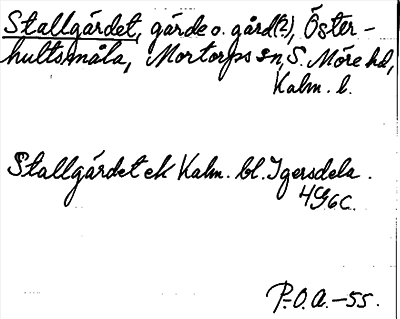 Stallgärdet, gärde o. gård(?), Öster-
hultsmåla, Mortorps sn, S. Möre hd,
Kalm. l.
Stallgärdet ek Kalm. bl. Igersdela.
4G6c.
P.O.A.-55.